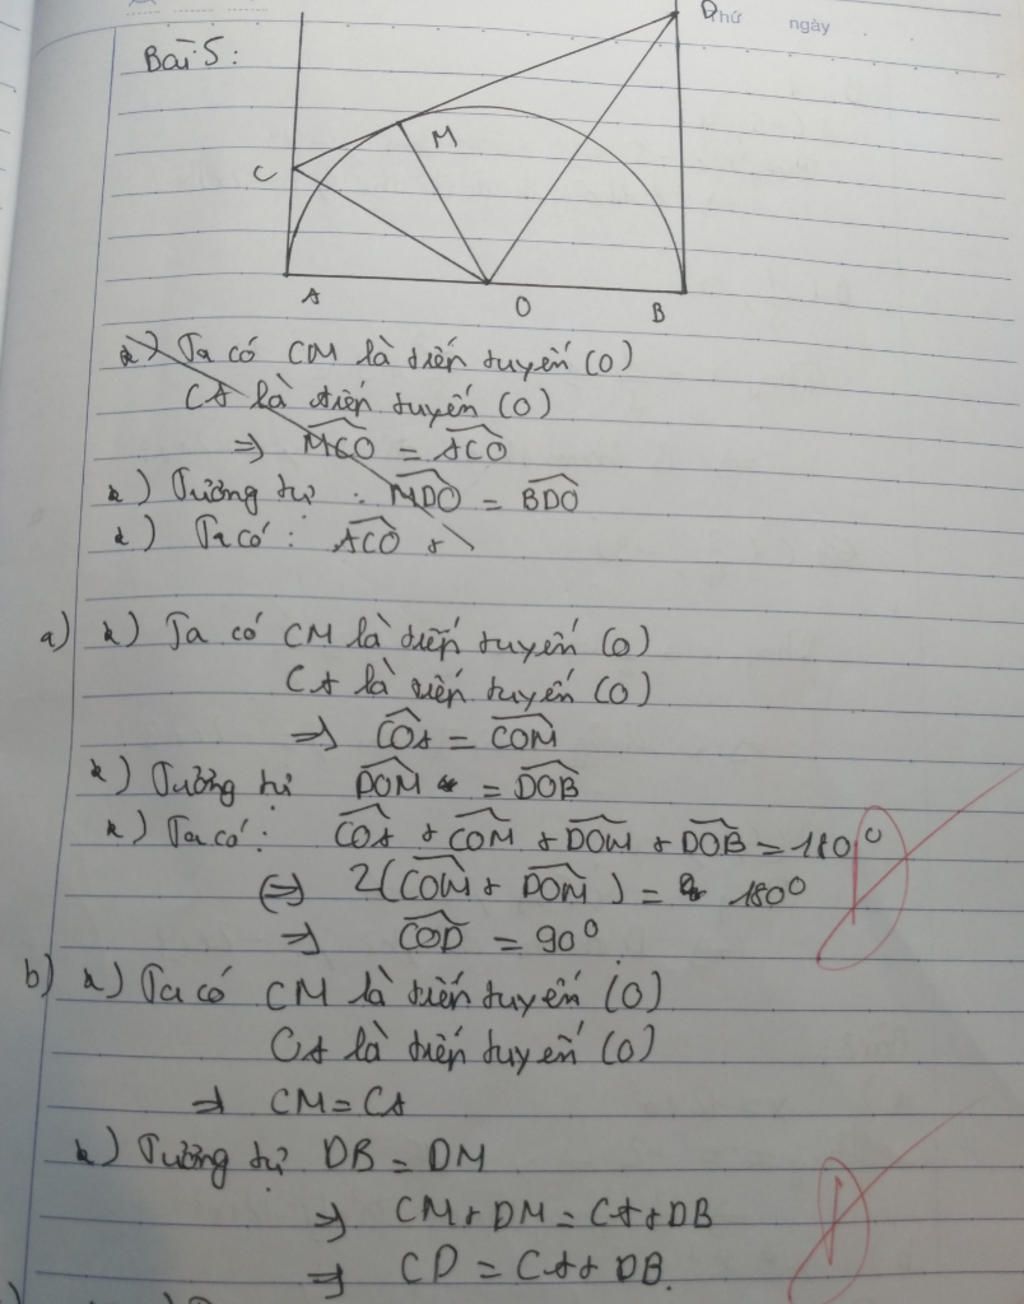 Thứ ngày
Bài 5:
D
M
C
A
O
B
*) Ta có CM là tiếp tuyến (O)
CA là tiếp tuyến (O)
⇒ \widehat{MCO} = \widehat{ACO}
*) Tương tự : \widehat{MDO} = \widehat{BDO}
*) Ta có : \widehat{ACO} +
a) *) Ta có CM là tiếp tuyến (O)
CA là tiếp tuyến (O)
⇒ \widehat{COA} = \widehat{COM}
*) Tương tự \widehat{DOM} = \widehat{DOB}
*) Ta có : \widehat{COA} + \widehat{COM} + \widehat{DOM} + \widehat{DOB} = 180°
⇔ 2(\widehat{COM} + \widehat{DOM}) = 180°
⇒ \widehat{COD} = 90°
b) *) Ta có CM là tiếp tuyến (O)
CA là tiếp tuyến (O)
⇒ CM = CA
*) Tương tự DB = DM
⇒ CM + DM = CA + DB
⇒ CD = CA + DB.